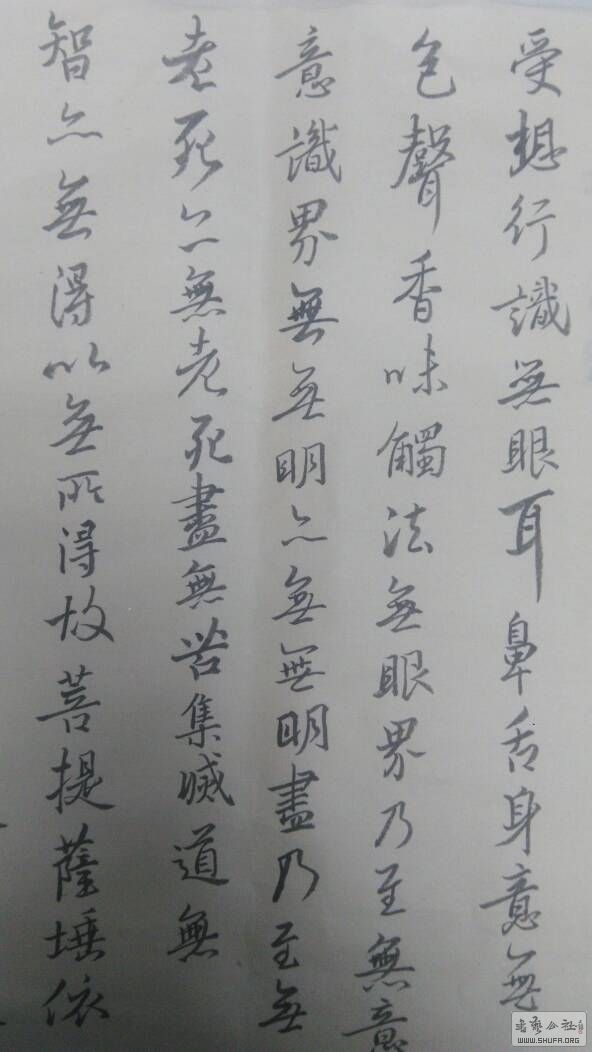 受想行識無眼耳鼻舌身意無
色聲香味觸法無眼界乃至無意
意識界無無明亦無無明盡乃至無
老死亦無老死盡無苦集滅道無
智亦無得以無所得故菩提薩埵依
WWW.SHUFA.ORG